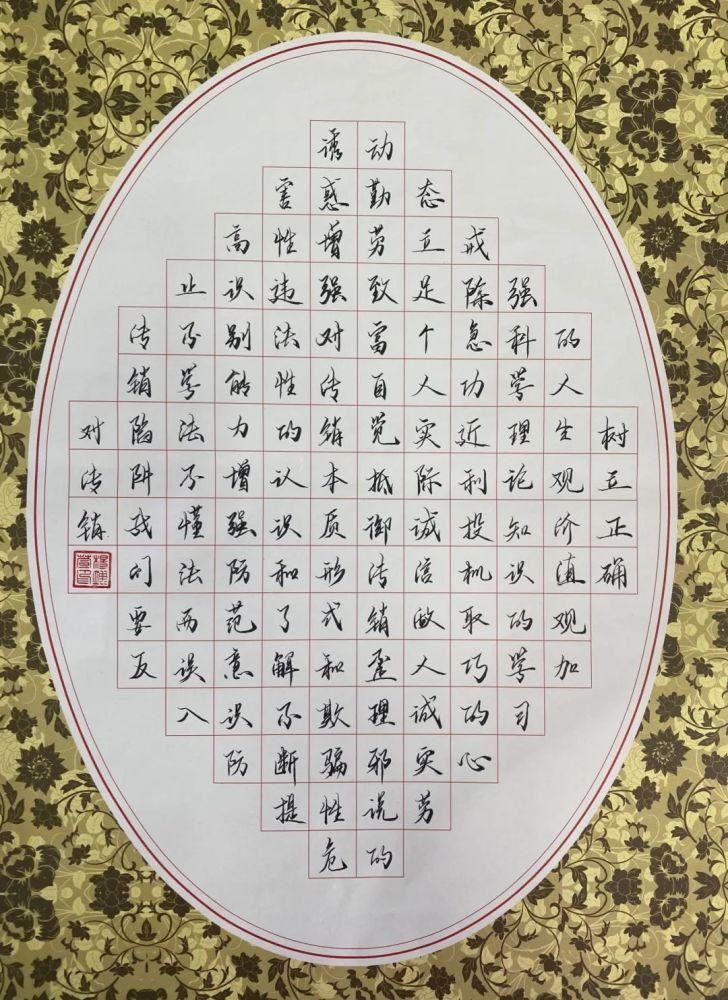 树立正确
的人生观价值观加
强科学理论知识的学习
戒除急功近利投机取巧的心
态立足个人实际诚信做人诚实劳
动勤劳致富自觉抵御传销歪理邪说的
诱惑增强对传销本质形式和欺骗性危
害性违法性的认识和了解不断提
高识别能力增强防范意识防
止不学法不懂法而误入
传销陷阱我们要反
对传销